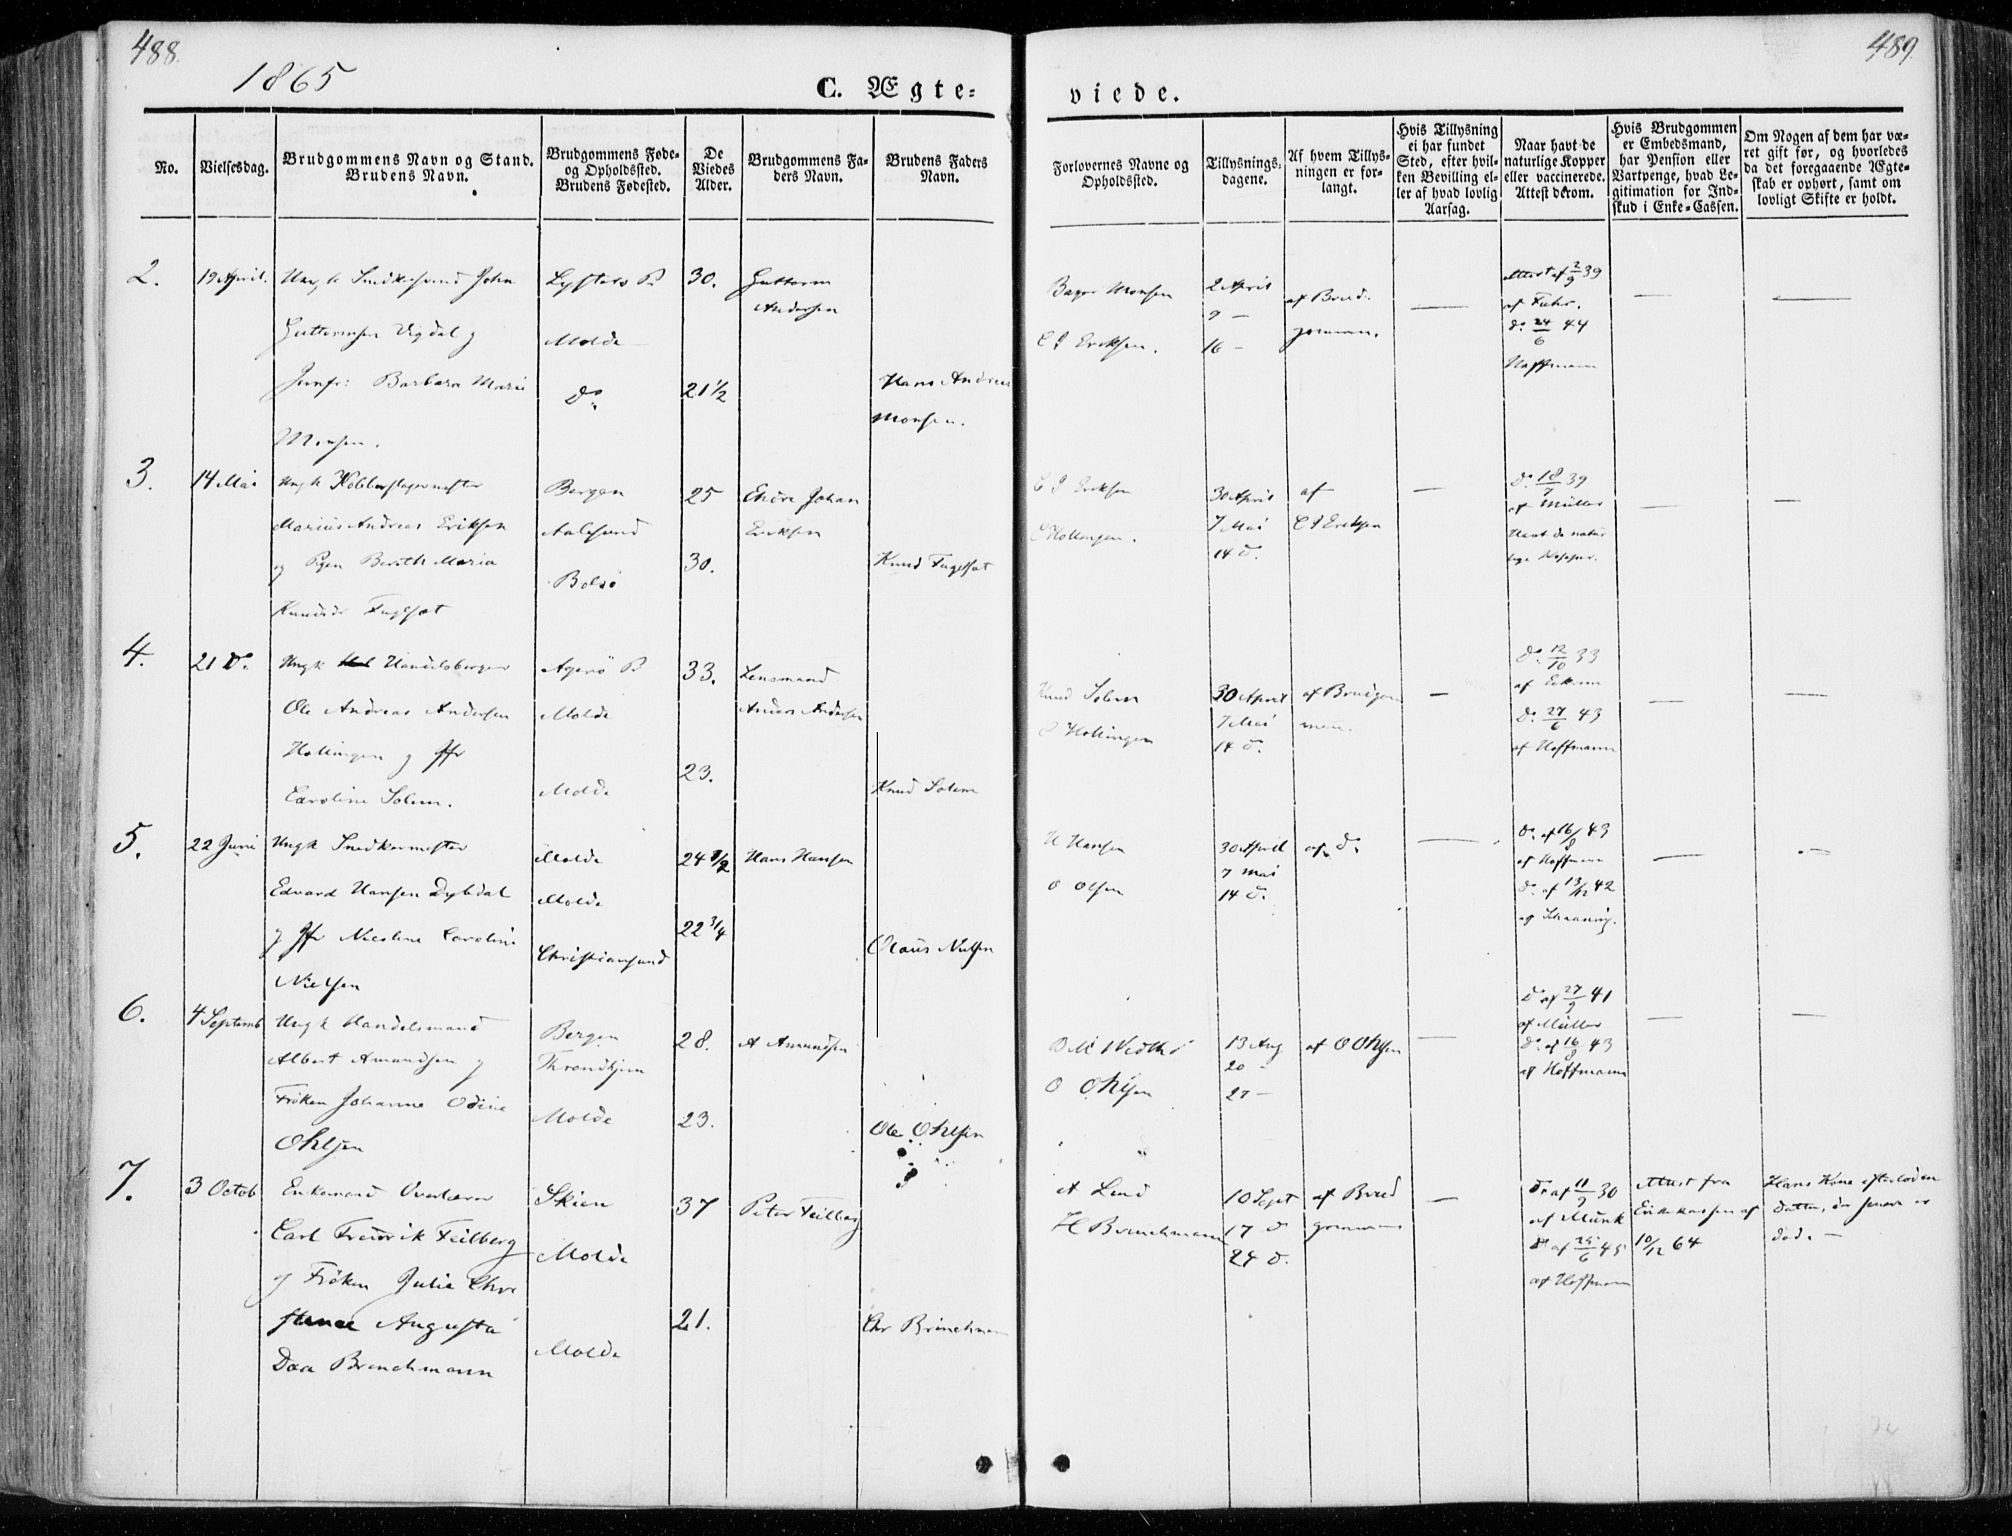 488.
489.
1865
C. Ægte-
viede.
No.
Vielsesdag.
Brudgommens Navn og Stand.
Brudens Navn.
Brudgommens Føde-
og Opholdssted.
Brudens Fødested.
De
Viedes
Alder.
Brudgommens Fa-
ders Navn.
Brudens Faders
Navn.
Forlovernes Navne og
Opholdssted.
Tillysnings-
dagene.
Af hvem Tillys-
ningen er for-
langt.
Hvis Tillysning
ei har fundet
Sted, efter hvil-
ken Bevilling el-
ler af hvad lovlig
Aarsag.
Naar havt de
naturlige Kopper
eller vaccinerede.
Attest derom.
Hvis Brudgommen
er Embedsmand,
har Pension eller
Vartpenge, hvad Le-
gitimation for Ind-
skud i Enke-Cassen.
Om Nogen af dem har væ-
ret gift før, og hvorledes
da det foregaaende Ægte-
skab er ophørt, samt om
lovligt Skifte er holdt.
2.
19 April.
Ungk Snedkersvend John
Guttormsen Vigdal og
Jomfr: Barbara Marie
Monsen.
Lysters P.
Molde
Do
30.
21 1/2
Guttorm
Andersen
Hans Andreas
Monsen.
Monsen
C J Eriksen.
2 April
9 -
16 -
af Brud-
gommen.
—
Attest af 2/9 39
af Fuhr.
do 24/6 44
Hoffmann
—
—
3.
14 Mai
Ungk Kobberslagermester
Marius Andreas Eriksen
og Pigen Berith Maria
Knudsd Fuglset
Bergen
Aalesund
Bolsø
25
30.
Endre Johan
Eriksen
Knud Fuglset
C J Eriksen
O Hollingen.
30 April
7 Mai
14 d.
af
C J Eriksen
—
do 18/7 39
af Müller
Havt de natur
lige Kopper.
—
—
4.
21 do
Ungk Handelsborger
Ole Andreas Andersen
Hollingen og Jfr
Caroline Solem.
Agerø P
Molde
Molde
33.
23.
Lensmand
Anders Andersen
Knud Solem
Knud Solem
O Hollingen
30 April
7 Mai
14 d.
af Brudgom
men.
—
do 12/10 33
af
do 27/6 43
af Hoffmann
—
—
5.
22 Juni
Ungk Snedkermester
Edvard Hansen Dybdal
og Jfr Nicoline Caroline
Nielsen
Molde
Molde
Christiansund
24 1/2
22 3/4
Hans Hansen
Olaus Nielsen
H Hansen
O Olsen
30 April
7 Mai
14 d.
af do
—
do af 16/8 43
af Hoffmann
do af 13/12 42
af Schaaning.
—
—
6.
4 Septemb
Ungk Handelsmand
Albert Amundsen og
Frøken Johanne Odine
Ohlsen
Bergen
Throndhjem
Molde
28.
23.
A Amundsen
Ole Ohlsen
O Ohlsen
13 Aug
20 -
27 -
af O Ohlsen
—
do af 27/9 41
af Müller
do af 16/8 43
af Hoffmann
—
—
7.
3 Octob
Enkemand Overlærer
Carl Fredrik Feilberg
og Frøken Julie Chri
stence Augusta
Daa Brinchmann
Skien
Molde
Molde
37
21.
Peter Feilberg
Chr Brinchman
A Lund
H Brinchmann
10 Sept
17 d
24 d.
af Brud
gommen
—
do af 11/9 30
af Munk
do af 25/6 45
af Hoffmann
Attest fra
Enkekassen af
10/12 64
Hans Kone efterlod en
Datter, der senere er
død. -